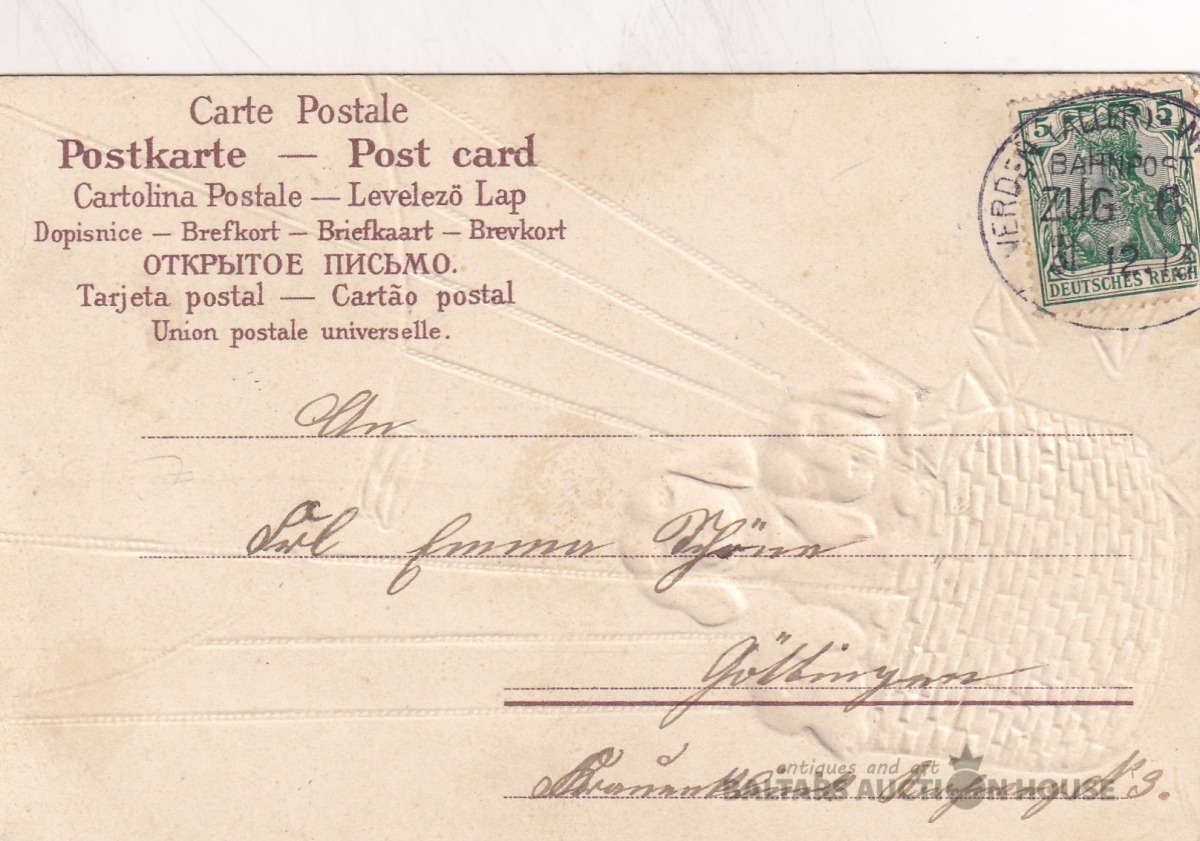 Carte Postale
Postkarte — Post card
Cartolina Postale — Levelező Lap
Dopisnice — Brefkort — Briefkaart — Brevkort
ОТКРЫТОЕ ПИСЬМО.
Tarjeta postal — Cartão postal
Union postale universelle.
5 5
VERDEN (ALLER)
BAHNPOST
ZUG 6
DEUTSCHES REICH
An
Frl Emma Schöne
Göttingen
No 3.
antiques and art
BALTARS AUCTION HOUSE